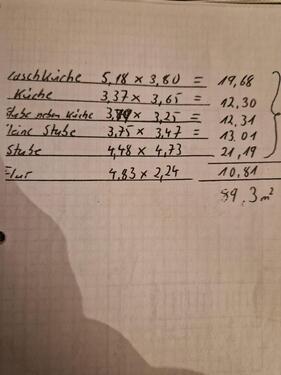 Waschküche 5,18 x 3,80 = 19,68
Küche 3,37 x 3,65 = 12,30
Stube neben Küche 3,79 x 3,25 = 12,31
kleine Stube 3,75 x 3,47 = 13,01
Stube 4,48 x 4,73 21,19
Flur 4,83 x 2,24 10,81
89,3 m²